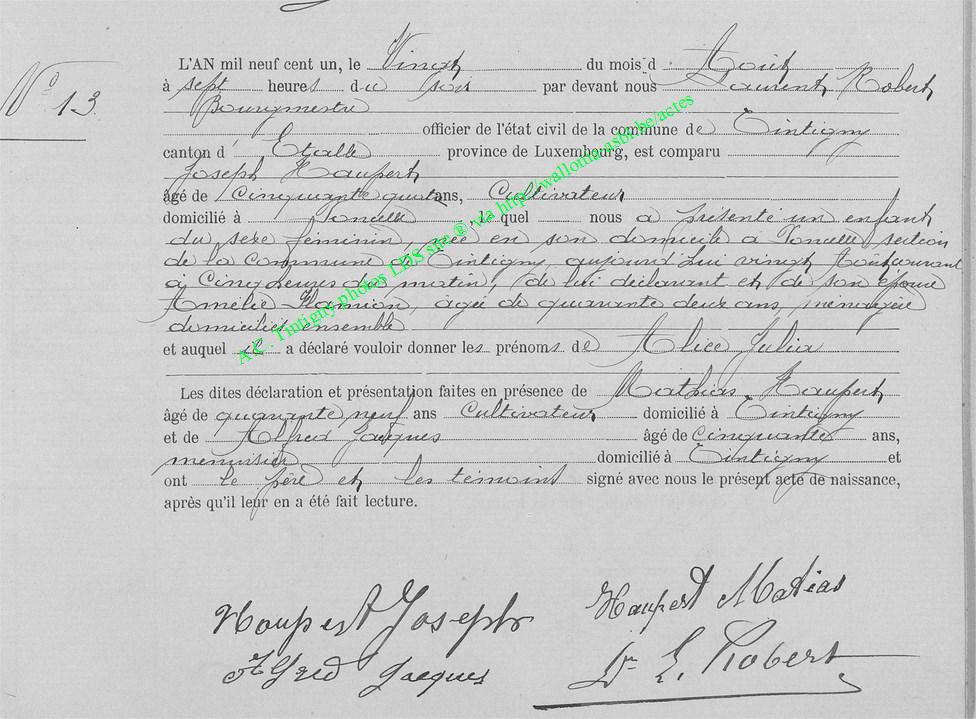 N° 13.
L'AN mil neuf cent un, le Vingt du mois d Août
à sept heures du soir par devant nous Laurent Robert
Bourgmestre
officier de l'état civil de la commune de Tintigny
canton d' Etalle province de Luxembourg, est comparu
Joseph Haupert
âgé de Cinquante quatre ans, Cultivateur
domicilié à Poncelle, le quel nous a présenté un enfant
du sexe féminin, née en son domicile à Poncelle, section
de la Commune de Tintigny, aujourd'hui vingt Août courant
à Cinq heures du matin, de lui déclarant et de son épouse
Amélie, agée de quarante deux ans, ménagère
domiciliés ensemble
et auquel il a déclaré vouloir donner les prénoms de Alice Julia
Les dites déclaration et présentation faites en présence de Mathias Haupert
âgé de quarante neuf ans Cultivateur domicilié à Tintigny
et de Alfred Jacques âgé de Cinquante ans,
menuisier domicilié à Tintigny et
ont le père et les témoins signé avec nous le présent acte de naissance,
après qu'il leur en a été fait lecture.
Haupert Joseph Haupert Matias
Alfred Jacques Dr L. Robert
A.C. Tintigny photos LDS site ® via http://wallonia.asbl.be/actes